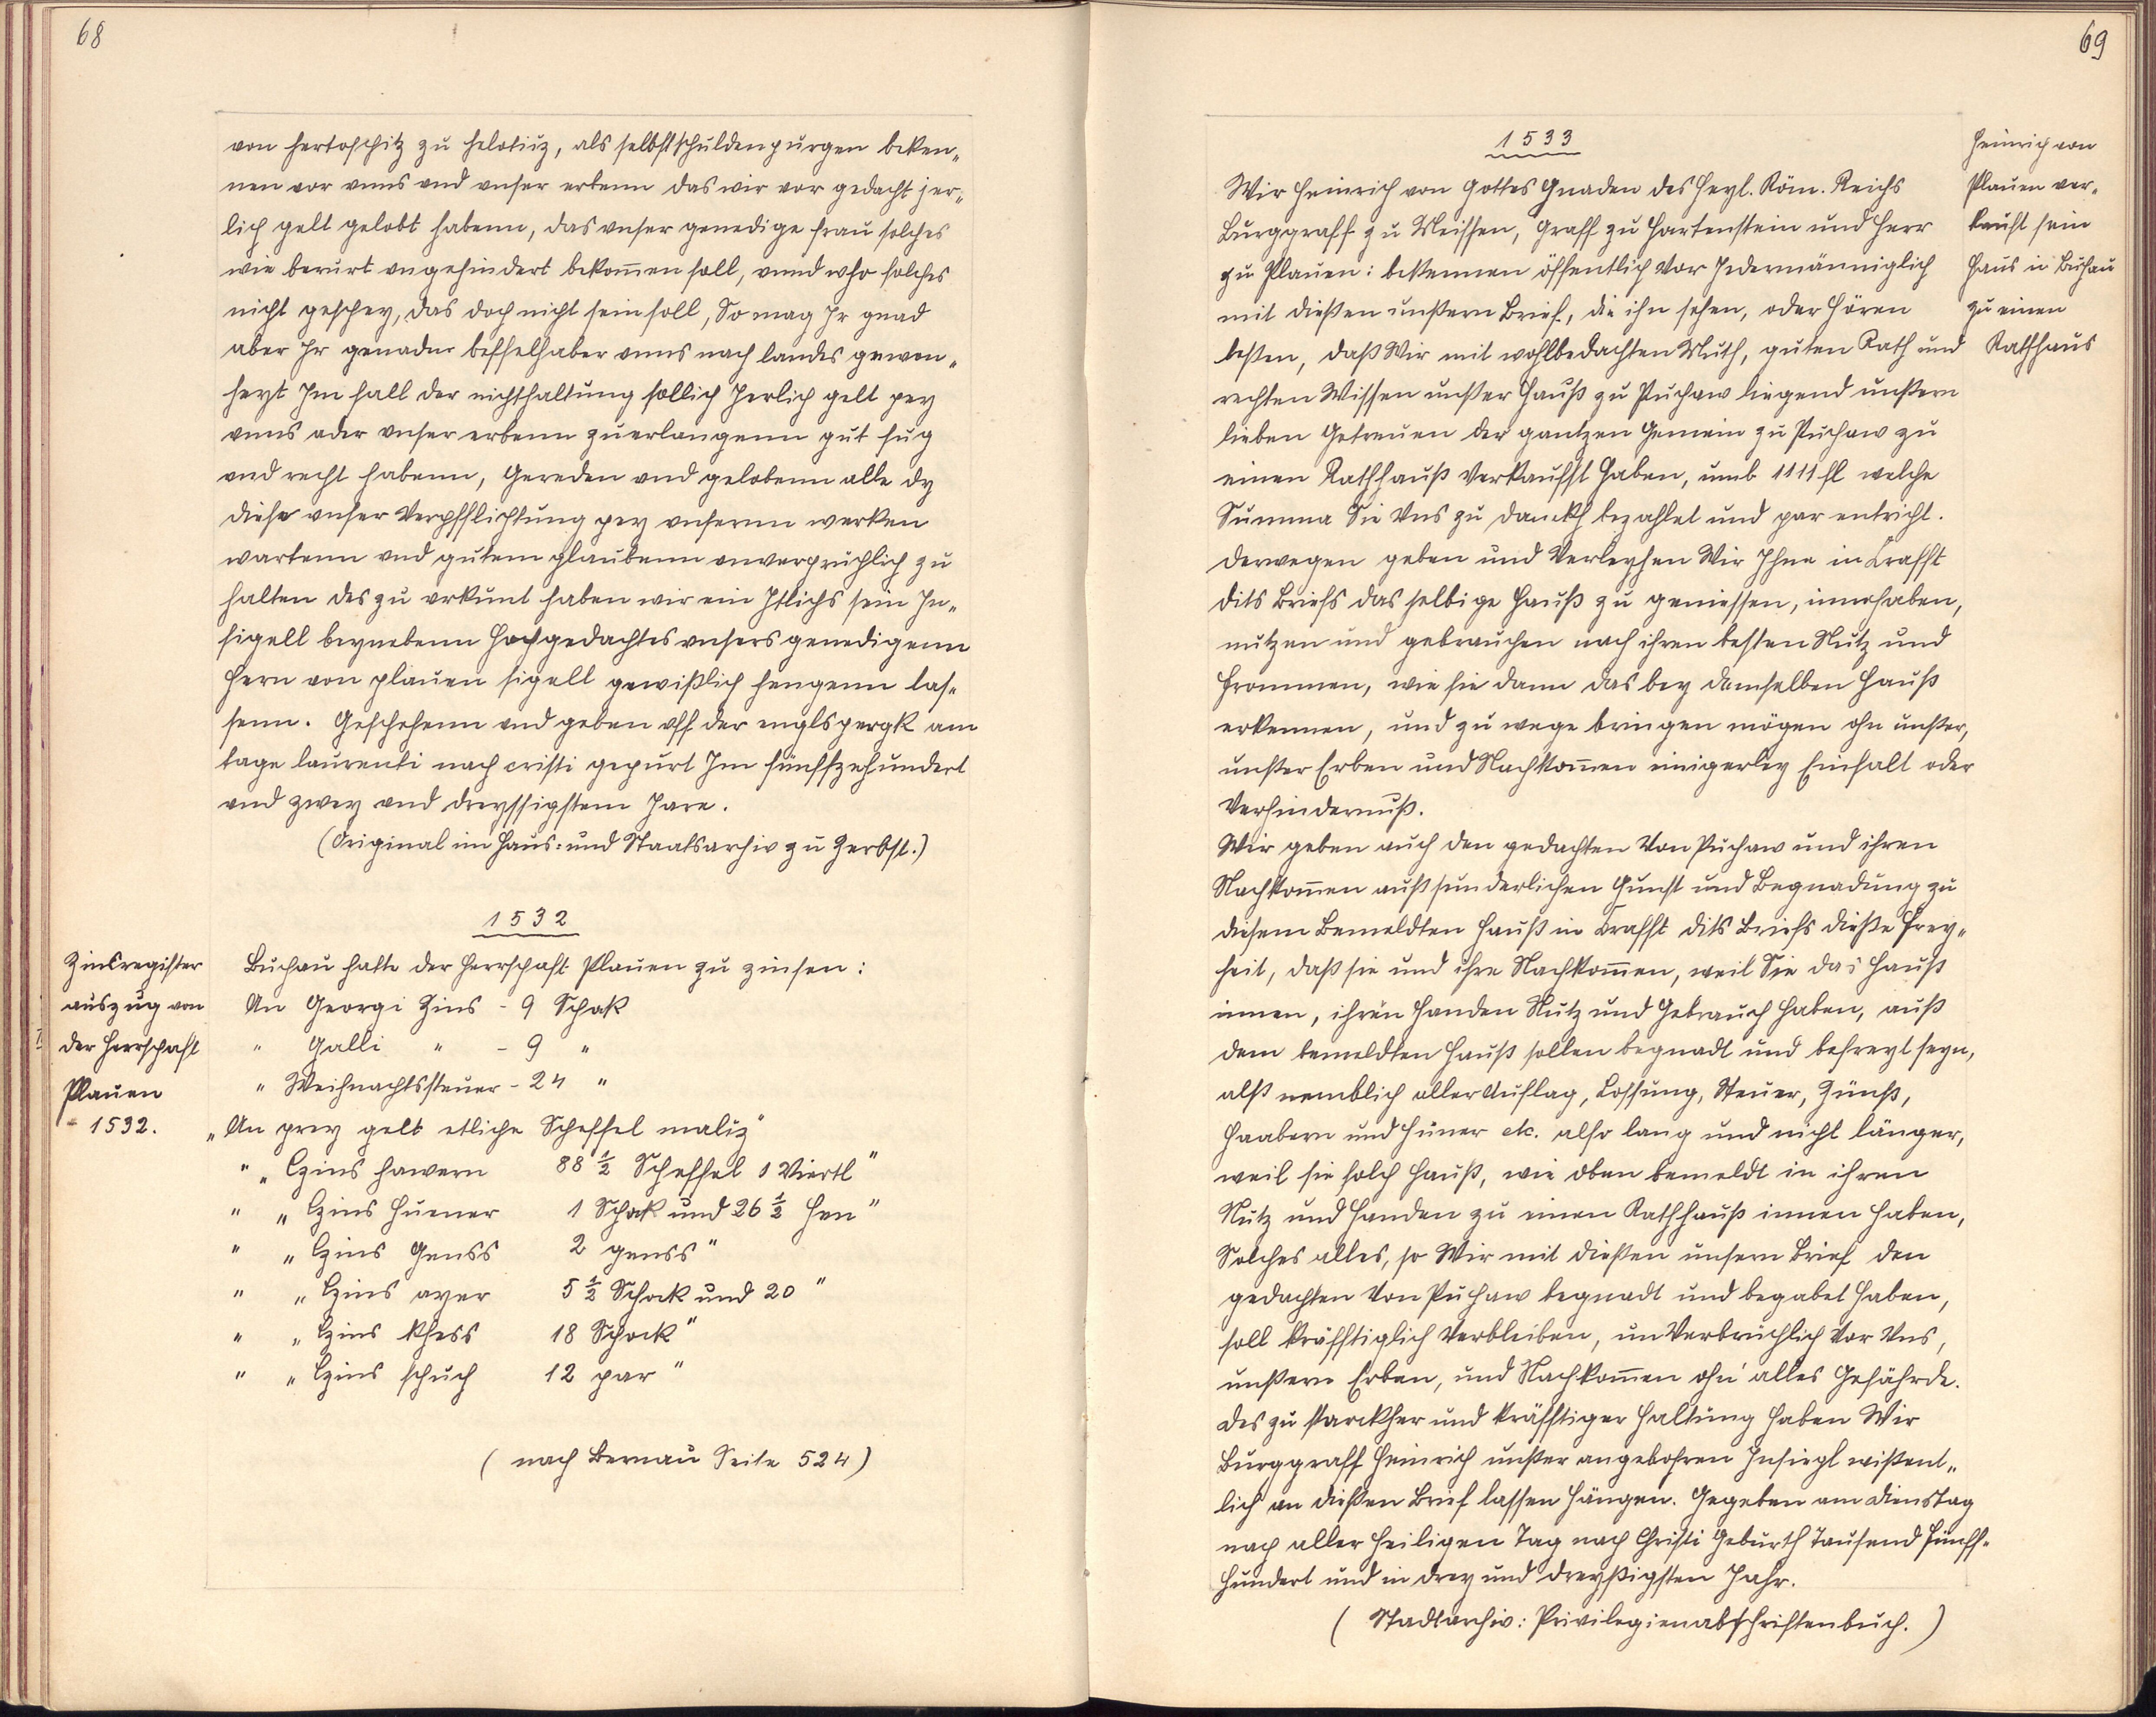 68
von hertoschitz zu helotiuz, als selbstschuldenpurgen beken„
nen vor vnns vnd vnser erbenn das wir vor gedacht jer„
lich gelt gelobt habenn, das vnser genedige frau solches
wie berurt vngehindert bekom̅en soll, vnnd who solches
nicht geschey, das doch nicht sein soll, So mag Ir gnad
aber Ir genaden beffelhaber vnns nach landes gewon„
heyt Im fall der nichthaltung sollich Jerlich gelt pey
vnns oder vnser erbenn zuerlangenn gut fug
vnd recht habenn, Gereden vnd gelobenn alle dy
diese vnser Verpfflichtung pey vnsernn werken
wartenn vnd gutem glaubenn vnverpruchlich zu
halten des zu vrkunt haben wir ein Itlichs sein In„
sigell beynebenn Hochgedachtes vnsers genedigenn
Hern von plauen sigell gewißlich hengenn las„
senn. Geschehenn vnd geben vff der englspergk am
tage laurenti nach cristi gepurt Im fünffzehundert
vnd zwey vnd dreyssigstem Jare.
(Original im Haus- und Staatsarchiv zu Zerbst.)
1532
Zinsregister
auszug von
der Herrschaft
Plauen
- 1532.
Buchau hatte der Herrschaft Plauen zu zinsen:
An Georgi Zins - 9 Schok
" Galli " - 9 "
" Weihnachtssteuer - 24 "
„An prey gelt etliche Scheffel maliz"
" „ Czins hawern 88 ½ Scheffel 1 Viertl "
" „ Czins Huener 1 Schok und 26 ½ Hen "
" „ Czins Genss 2 genss "
" „ Czins ayer 5 ½ Schock und 20 "
" „ Czins khess 18 Schock "
" „ Czins schuch 12 par "
( nach Bernau Seite 524)
69
1533
Heinrich von
Plauen ver„
kauft sein
Haus in Buchau
zu einen
Rathhaus
Wir Heinrich von Gottes Gnaden des Heyl. Röm. Reichs
Burggraff zu Meissen, Graff zu Hartenstein und Herr
zu Plauen: bekennen öffentlich Vor Jedermänniglich
mit dießen unßern Brief, die ihn sehen, oder Hören
leßen, daß Wir mit wohlbedachten Muth, guten Rath und
rechten Wissen unßer Hauß zu Puchaw liegend unßern
lieben Getreuen der gantzen Gemein zu Puchaw zu
einen Rathhauß Verkaufft Haben, umb 1111 fl welche
Summa Sie Vns zu danckh bezahlet und par entricht.
Derwegen geben und Verleyhen Wir Ihne in Crafft
dits Briefs das selbige Hauß zu geniessen, innehaben,
nutzen und gebrauchen nach ihren besten Nutz und
Frommen, wie sie dann das bey demselben Hauß
erkennen, und zu wege bringen mögen ohn unßer,
unßer Erben und Nachkom̅en einigerley Einhalt oder
Verhindernuß.
Wir geben auch den gedachten Von Puchaw und ihren
Nachkom̅en auß sunderlichen Gunst und Begnadung zu
diesem Bemeldten Hauß in Crafft dits Briefs dieße Frey„
heit, daß sie und ihre Nachkom̅en, weil Sie das Hauß
innen, ihren Handen Nutz und Gebrauch haben, auß
dem bemeldten Hauß sollen begnadt und befreyt seyn,
alß nemblich aller Auflag, Lossung, Steuer, Zünß,
Haabern und Hüner etc. also lang und nicht länger,
weil sie solch Hauß, wie oben bemeldt in ihren
Nutz und Handen zu einen Rathhauß innen haben,
Solches alles, so Wir mit dießen unsern Brief den
gedachten Von Puchaw begnadt und begabet haben,
soll kräfftiglich Verbleiben, un Verbrüchlich Vor Vns,
unßern Erben, und Nachkom̅en ohn' alles Gefährde.
Des zu starckher und kräfftiger Haltung haben Wir
Burggraff Heinrich unßer angebohren Insiegl wißent„
lich an dießen Brief lassen Hängen. Gegeben am Dienstag
nach aller Heiligen Tag nach Christi Geburth Tausend fünff„
Hundert und in drey und dreyßigsten Jahr.
( Stadtarchiv: Privilegienabschriftenbuch. )